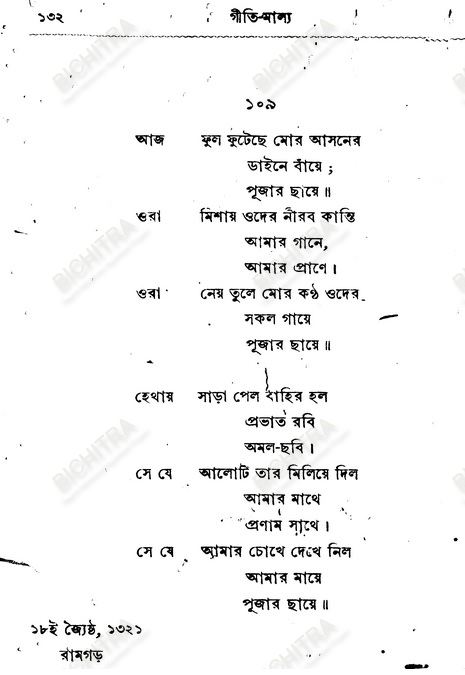 ১৩২ গীতি-মাল্য
১০৯
আজ ফুল ফুটেছে মোর আসনের
ডাইনে বাঁয়ে ;
পূজার ছায়ে ॥
ওরা মিশায় ওদের নীরব কান্তি
আমার গানে,
আমার প্রাণে ।
ওরা নেয় তুলে মোর কণ্ঠ ওদের
সকল গায়ে
পূজার ছায়ে ॥
হেথায় সাড়া পেল বাহির হল
প্রভাত রবি
অমল-ছবি ।
সে যে আলোটি তার মিলিয়ে দিল
আমার মাথে
প্রণাম সাথে ।
সে যে আমার চোখে দেখে নিল
আমার মায়ে
পূজার ছায়ে ॥
১৮ই জ্যৈষ্ঠ, ১৩২১
রামগড়
BICHITRA
BICHITRA
BICHITRA
BICHITRA
BICHITRA
BICHITRA
BICHITRA